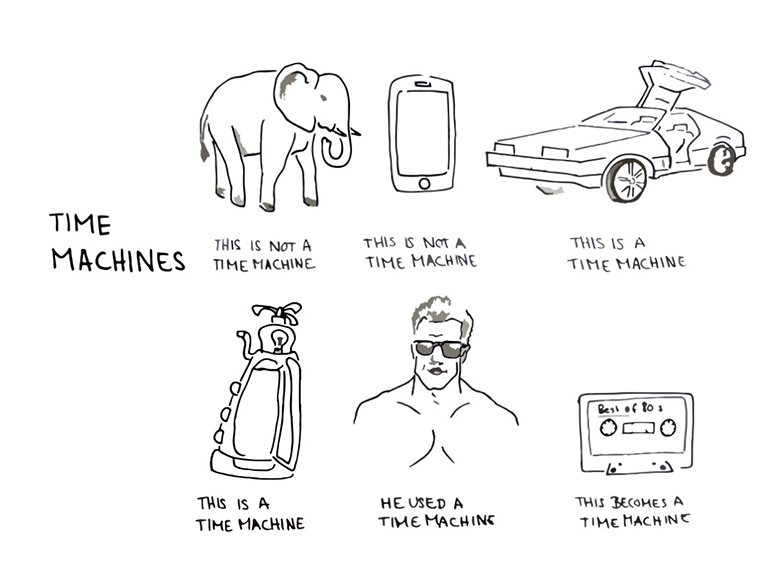 TIME
MACHINES
THIS IS NOT A
TIME MACHINE
THIS IS NOT A
TIME MACHINE
THIS IS A
TIME MACHINE
THIS IS A
TIME MACHINE
HE USED A
TIME MACHINE
Best of 80s
THIS BECOMES A
TIME MACHINE